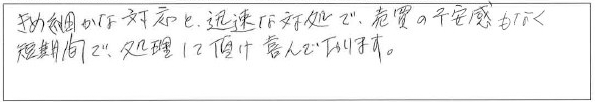 きめ細かな対応と、迅速な対処で、売買の不安感もなく
短期間で、処理して頂け喜んでおります。